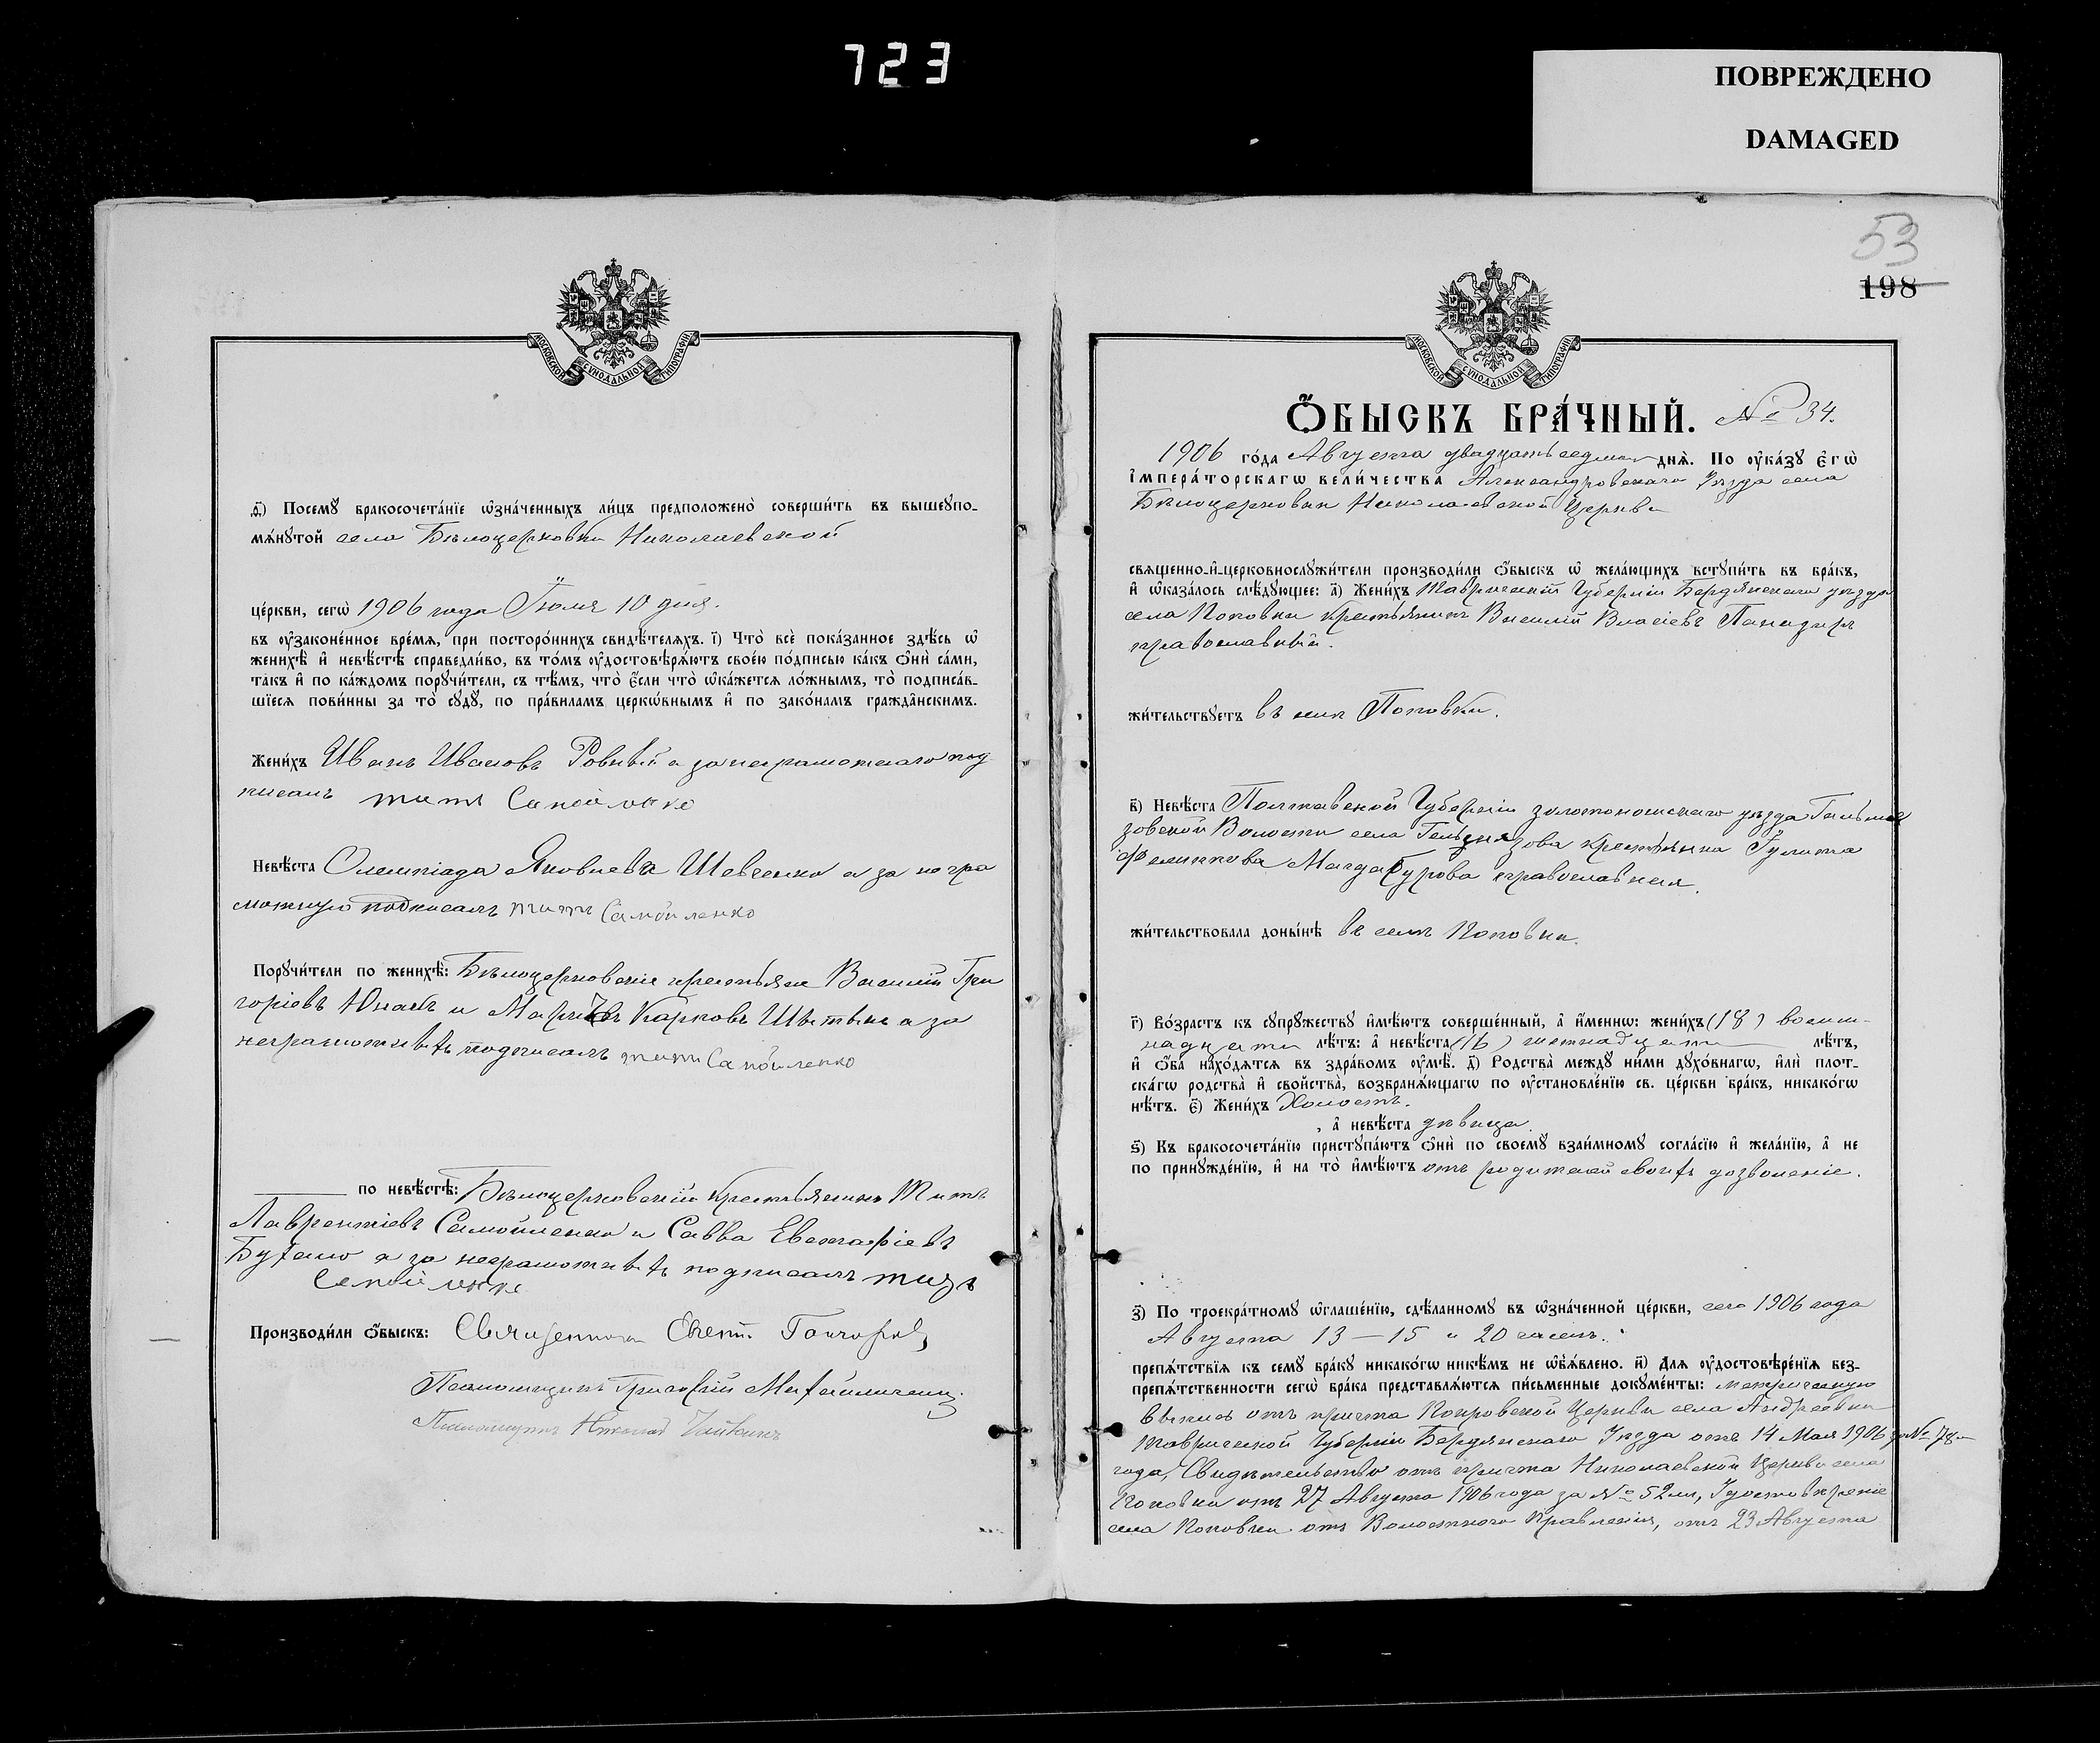 723
ПОВРЕЖДЕНО
DAMAGED
МОСКОВСКОЙ СѴНОДАЛЬНОЙ ТИПОГРАФІИ
ѳ҃) Посемꙋ бракосочета́нїе ѡ҆зна́ченныхъ ли́цъ предположено̀ соверши́ть въ вышеꙋпо-
мѧ́нꙋтой села Бѣлоцерковки Николаевской
це́ркви, сегѡ̀ 1906 года Іюля 10 дня.
въ ᲂу҆зако́не́нное вре́мѧ, при посторо́ннихъ свидѣ́телѧхъ. і҃) Что̀ всѐ пока́занное здѣ́сь ѡ҆
женихѣ̀ и҆ невѣ́стѣ справедли́во, въ то́мъ ᲂу҆достовѣрѧ́ютъ свое́ю по́дписью ка́къ ѻ҆нѝ са́ми,
та́къ и҆ по ка́ждомъ порꙋчи́тели, съ тѣ́мъ, что̀ є҆́сли что̀ ѡ҆ка́жетсѧ ло́жнымъ, то̀ подписа́в-
шїесѧ пови́нны за то̀ сꙋдꙋ̀, по пра́виламъ церкѡ́внымъ и҆ по зако́намъ гражда̑нскимъ.
Жени́хъ Иванъ Ивановъ Ровный а за неграмотнаго под
писалъ титъ Самойленко
Невѣ́ста Олимпіада Яковлева Шевченко а за негра
мотную подписалъ титъ Самойленко
Порꙋчи́тели по женихѣ̀: Бѣлоцерковскіе крестьяне Василій Гри
горіевъ Юнакъ и Карповъ а за
неграмотныхъ подписалъ титъ Самойленко
по невѣ́стѣ: Бѣлоцерковскій крестьянинъ Титъ
Лаврентіевъ Самойленко и Савва Евстафіевъ
а за неграмотныхъ подписалъ титъ
Самойленко
Производи́ли ѻ҆́быскъ: Священникъ Гончаровъ
Псаломщикъ Григорій
Псаломщикъ Николай
53
198
МОСКОВСКОЙ СѴНОДАЛЬНОЙ ТИПОГРАФІИ
Ѻ҆́БЫСКЪ БРА́ЧНЫЙ. № 34.
1906 го́да Августа двадцать седьмого днѧ̀. По ᲂу҆ка́зꙋ є҆гѡ̀
і҆мпера́торскагѡ вели́чества Александровскаго Уѣзда села
Бѣлоцерковки Николаевской Церкви
свѧще́нно-и҆-церковнослꙋжи́тели производи́ли ѻ҆́быскъ ѡ҆ жела́ющихъ встꙋпи́ть въ бра́къ,
и҆ ѡ҆каза́лось слѣ́дꙋющее: а҃) Жени́хъ Таврической Губерніи Бердянскаго уѣзда
села Поповки крестьянинъ Василій Власіевъ
православный.
жи́тельствꙋетъ въ селѣ Поповки.
в҃) Невѣ́ста Полтавской Губерніи золотоношскаго уѣзда Гельмя
зовской Волости села Гельмязова крестьянка
православная.
жи́тельствовала доны́нѣ въ селѣ Поповки.
г҃) Во́зрастъ къ сꙋпрꙋ́жествꙋ и҆мѣ́ютъ соверше́нный, а҆ и҆́меннѡ: жени́хъ (18) восем-
надцати лѣ́тъ: а҆ невѣ́ста (16) шестнадцати лѣ́тъ,
и҆ ѻ҆́ба нахо́дѧтсѧ въ здра́вомъ ᲂу҆мѣ̀. д҃) Родства̀ междꙋ ни́ми дꙋхо́внагѡ, и҆лѝ плот-
ска́гѡ родства̀ и҆ сво́йства̀, возбранѧ́ющагѡ по ᲂу҆становле́нїю св. це́ркви бра́къ, никако́гѡ
нѣ́тъ. є҃) Жени́хъ Холостъ.
, а҆ невѣ́ста дѣвица.
ѕ҃) Къ бракосочета́нїю пристꙋпа́ютъ ѻ҆нѝ по своемꙋ̀ взаи́мномꙋ согла́сїю и҆ жела́нїю, а҆ не
по принꙋжде́нїю, и҆ на то̀ и҆мѣ́ютъ отъ родителей своихъ дозволеніе.
з҃) По троекра́тномꙋ ѡ҆глаше́нїю, сдѣ́ланномꙋ въ ѡ҆зна́ченной це́ркви, сего 1906 года
Августа 13 — 15 и 20 числъ.
препѧ́тствїѧ къ семꙋ̀ бра́кꙋ никако́гѡ никѣ́мъ не ѡ҆б̾ѧ́влено. и҃) Длѧ ᲂу҆достовѣре́нїѧ без-
препѧ́тственности сегѡ̀ бра́ка представлѧ́ютсѧ пи́сьменные докꙋме́нты: метрическую
выпись отъ причта Покровской Церкви села Андреевки
Таврической Губерніи Бердянскаго Уѣзда отъ 14 Мая 1906 за № 78
года, Свидѣтельство отъ причта Николаевской Церкви села
Поповки отъ 27 Августа 1906 года за № 52мъ, Удостовѣреніе
села Поповки отъ Волостного Правленія, отъ 23 Августа